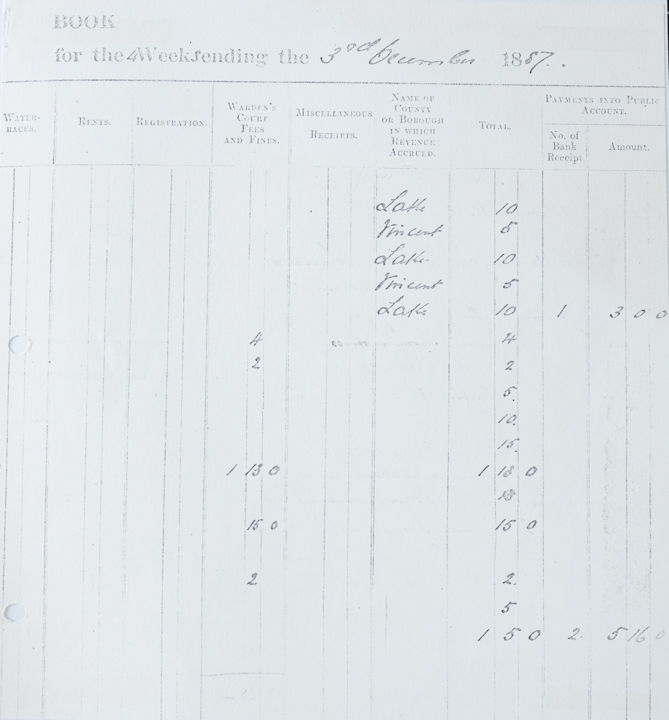 BOOK
for the 4 Weeks ending the 3rd December 1887.
WATER-RACES. RENTS. REGISTRATION. WARDEN'S COURT FEES AND FINES. MISCELLANEOUS RECEIPTS. NAME OF COUNTY OR BOROUGH IN WHICH REVENUE ACCRUED. TOTAL. PAYMENTS INTO PUBLIC ACCOUNT.
No. of Bank Receipt. Amount.
Lake 10
Vincent 5
Lake 10
Vincent 5
Lake 10 1 3 0 0
4 4
2 2
5
10
15
1 13 0 1 13 0
15 0 15 0
2 2
5
1 5 0 2 5 16 0